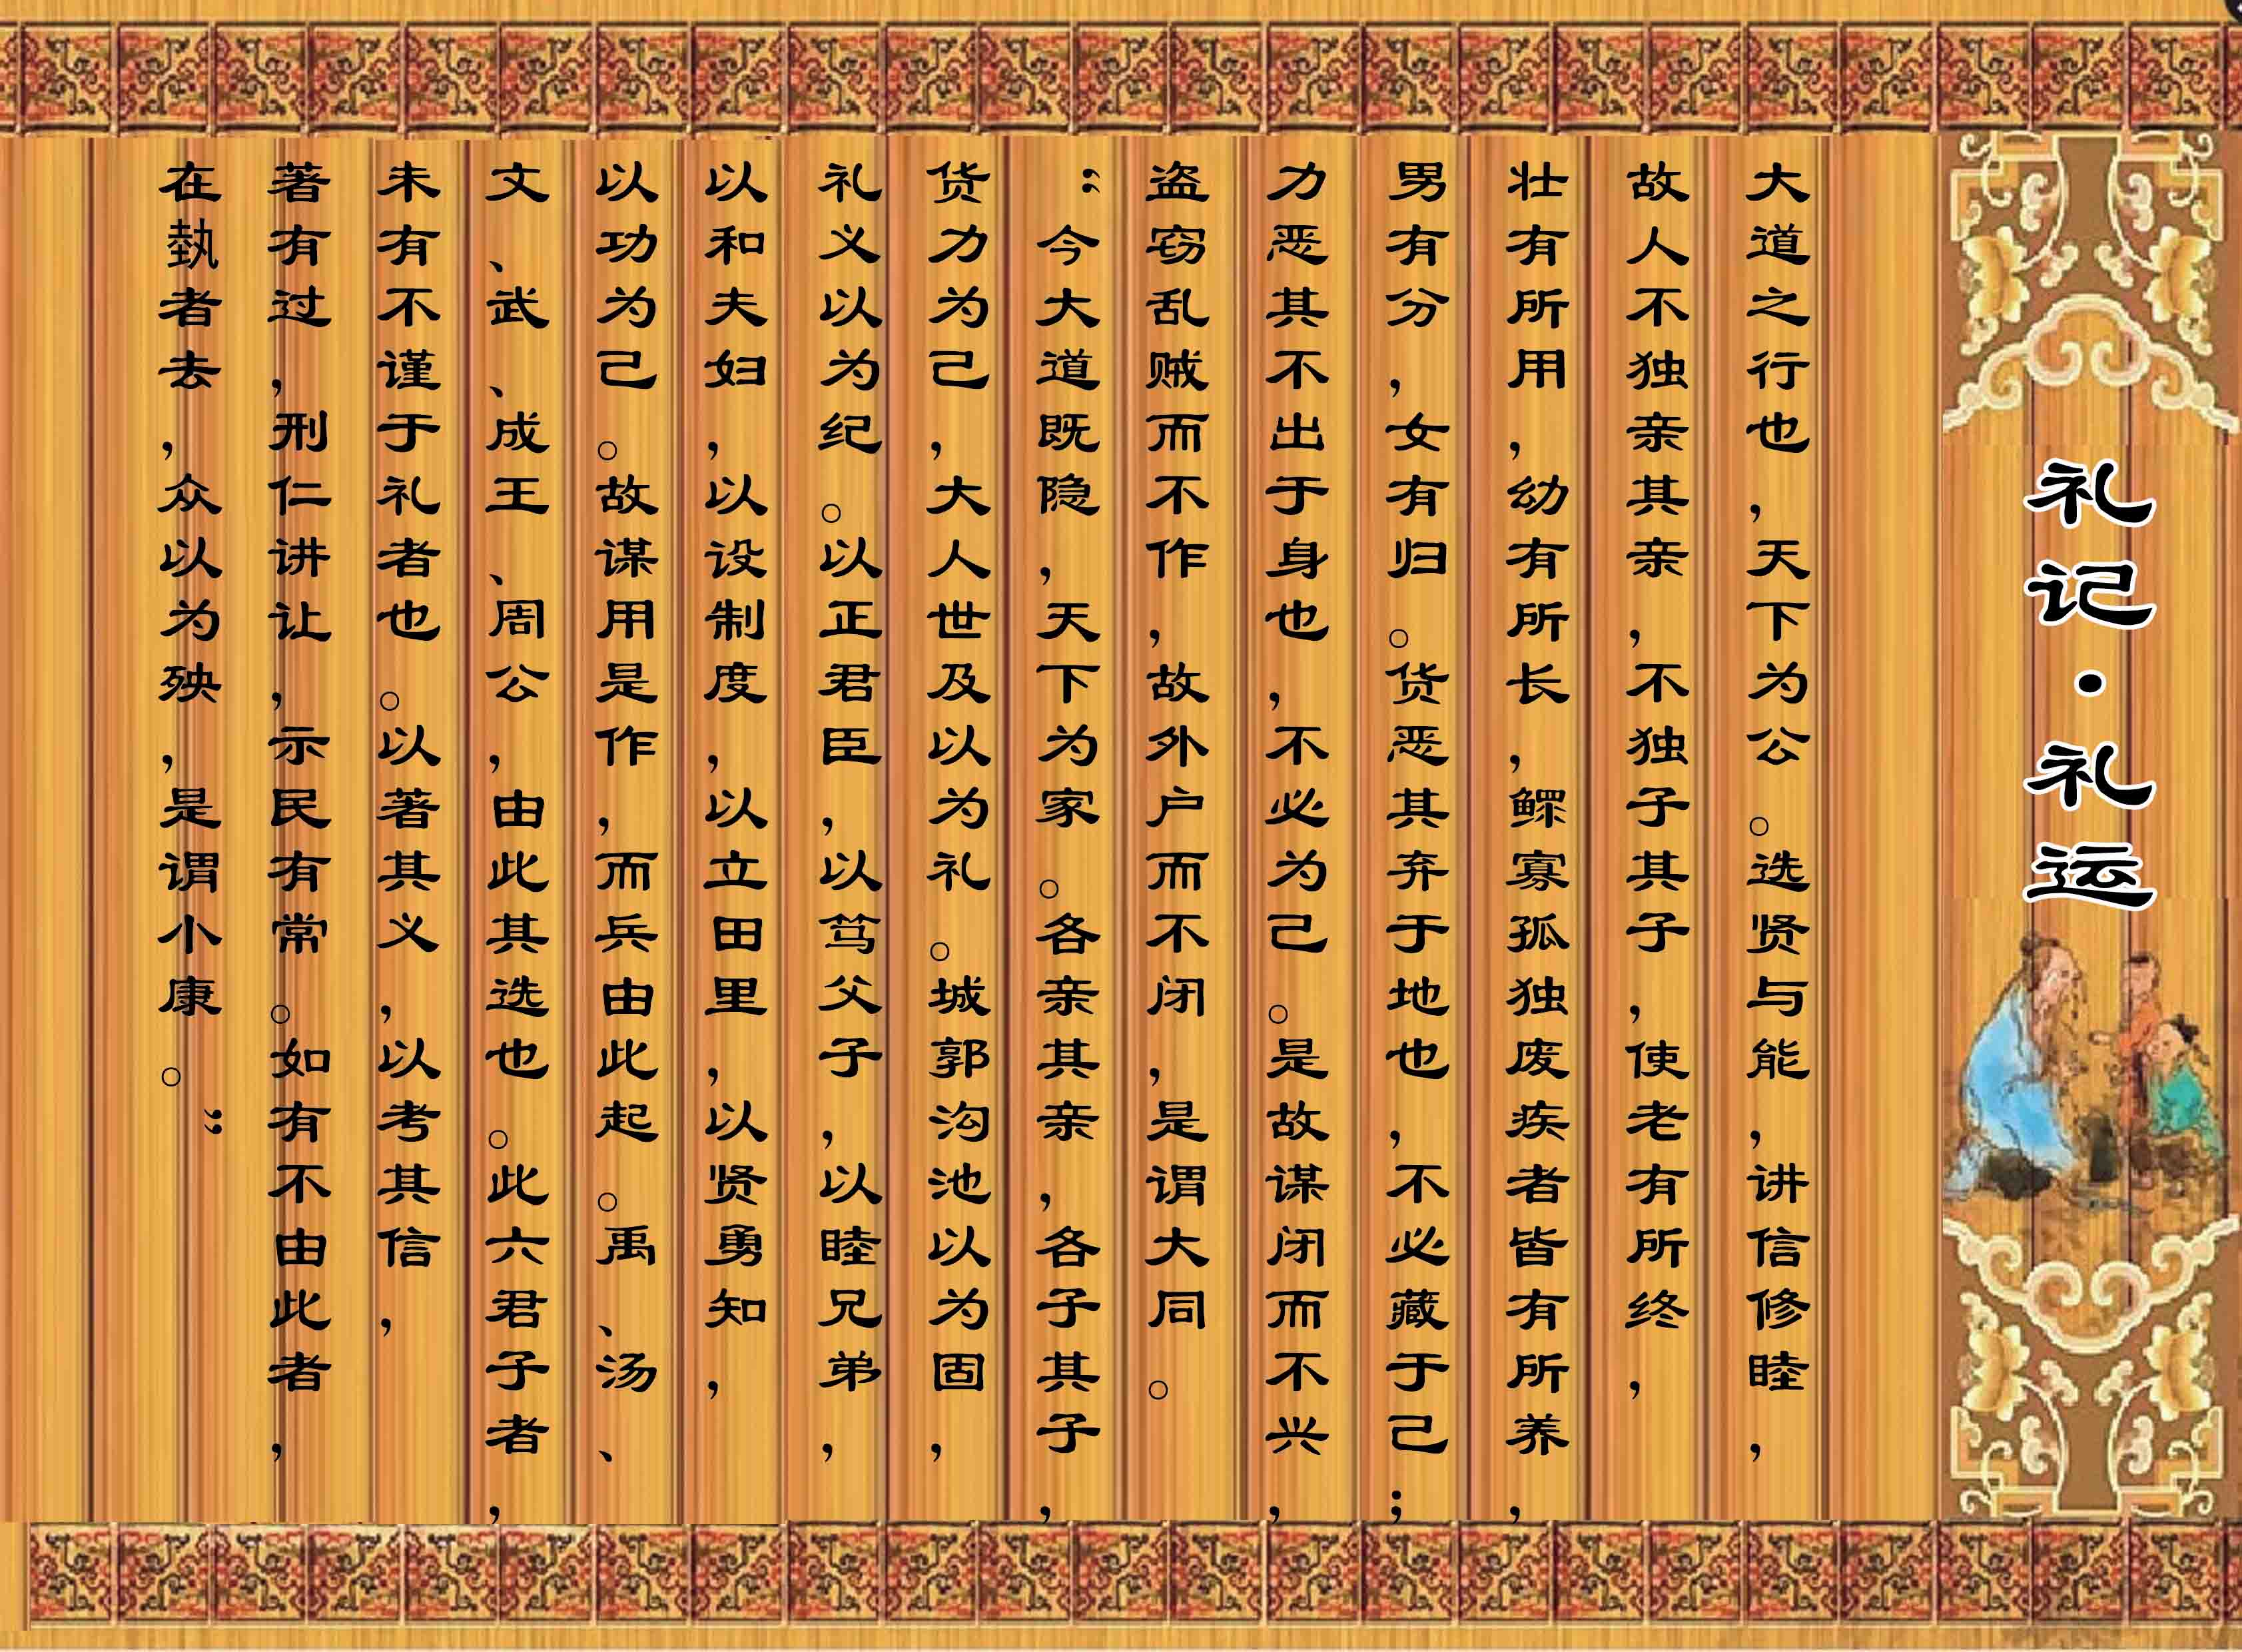 礼记·礼运
大道之行也，天下为公。选贤与能，讲信修睦，
故人不独亲其亲，不独子其子，使老有所终，
壮有所用，幼有所长，鳏寡孤独废疾者皆有所养，
男有分，女有归。货恶其弃于地也，不必藏于己；
力恶其不出于身也，不必为己。是故谋闭而不兴，
盗窃乱贼而不作，故外户而不闭，是谓大同。
“今大道既隐，天下为家。各亲其亲，各子其子，
货力为己，大人世及以为礼。城郭沟池以为固，
礼义以为纪。以正君臣，以笃父子，以睦兄弟，
以和夫妇，以设制度，以立田里，以贤勇知，
以功为己。故谋用是作，而兵由此起。禹、汤、
文、武、成王、周公，由此其选也。此六君子者，
未有不谨于礼者也。以著其义，以考其信，
著有过，刑仁讲让，示民有常。如有不由此者，
在埶者去，众以为殃，是谓小康。”